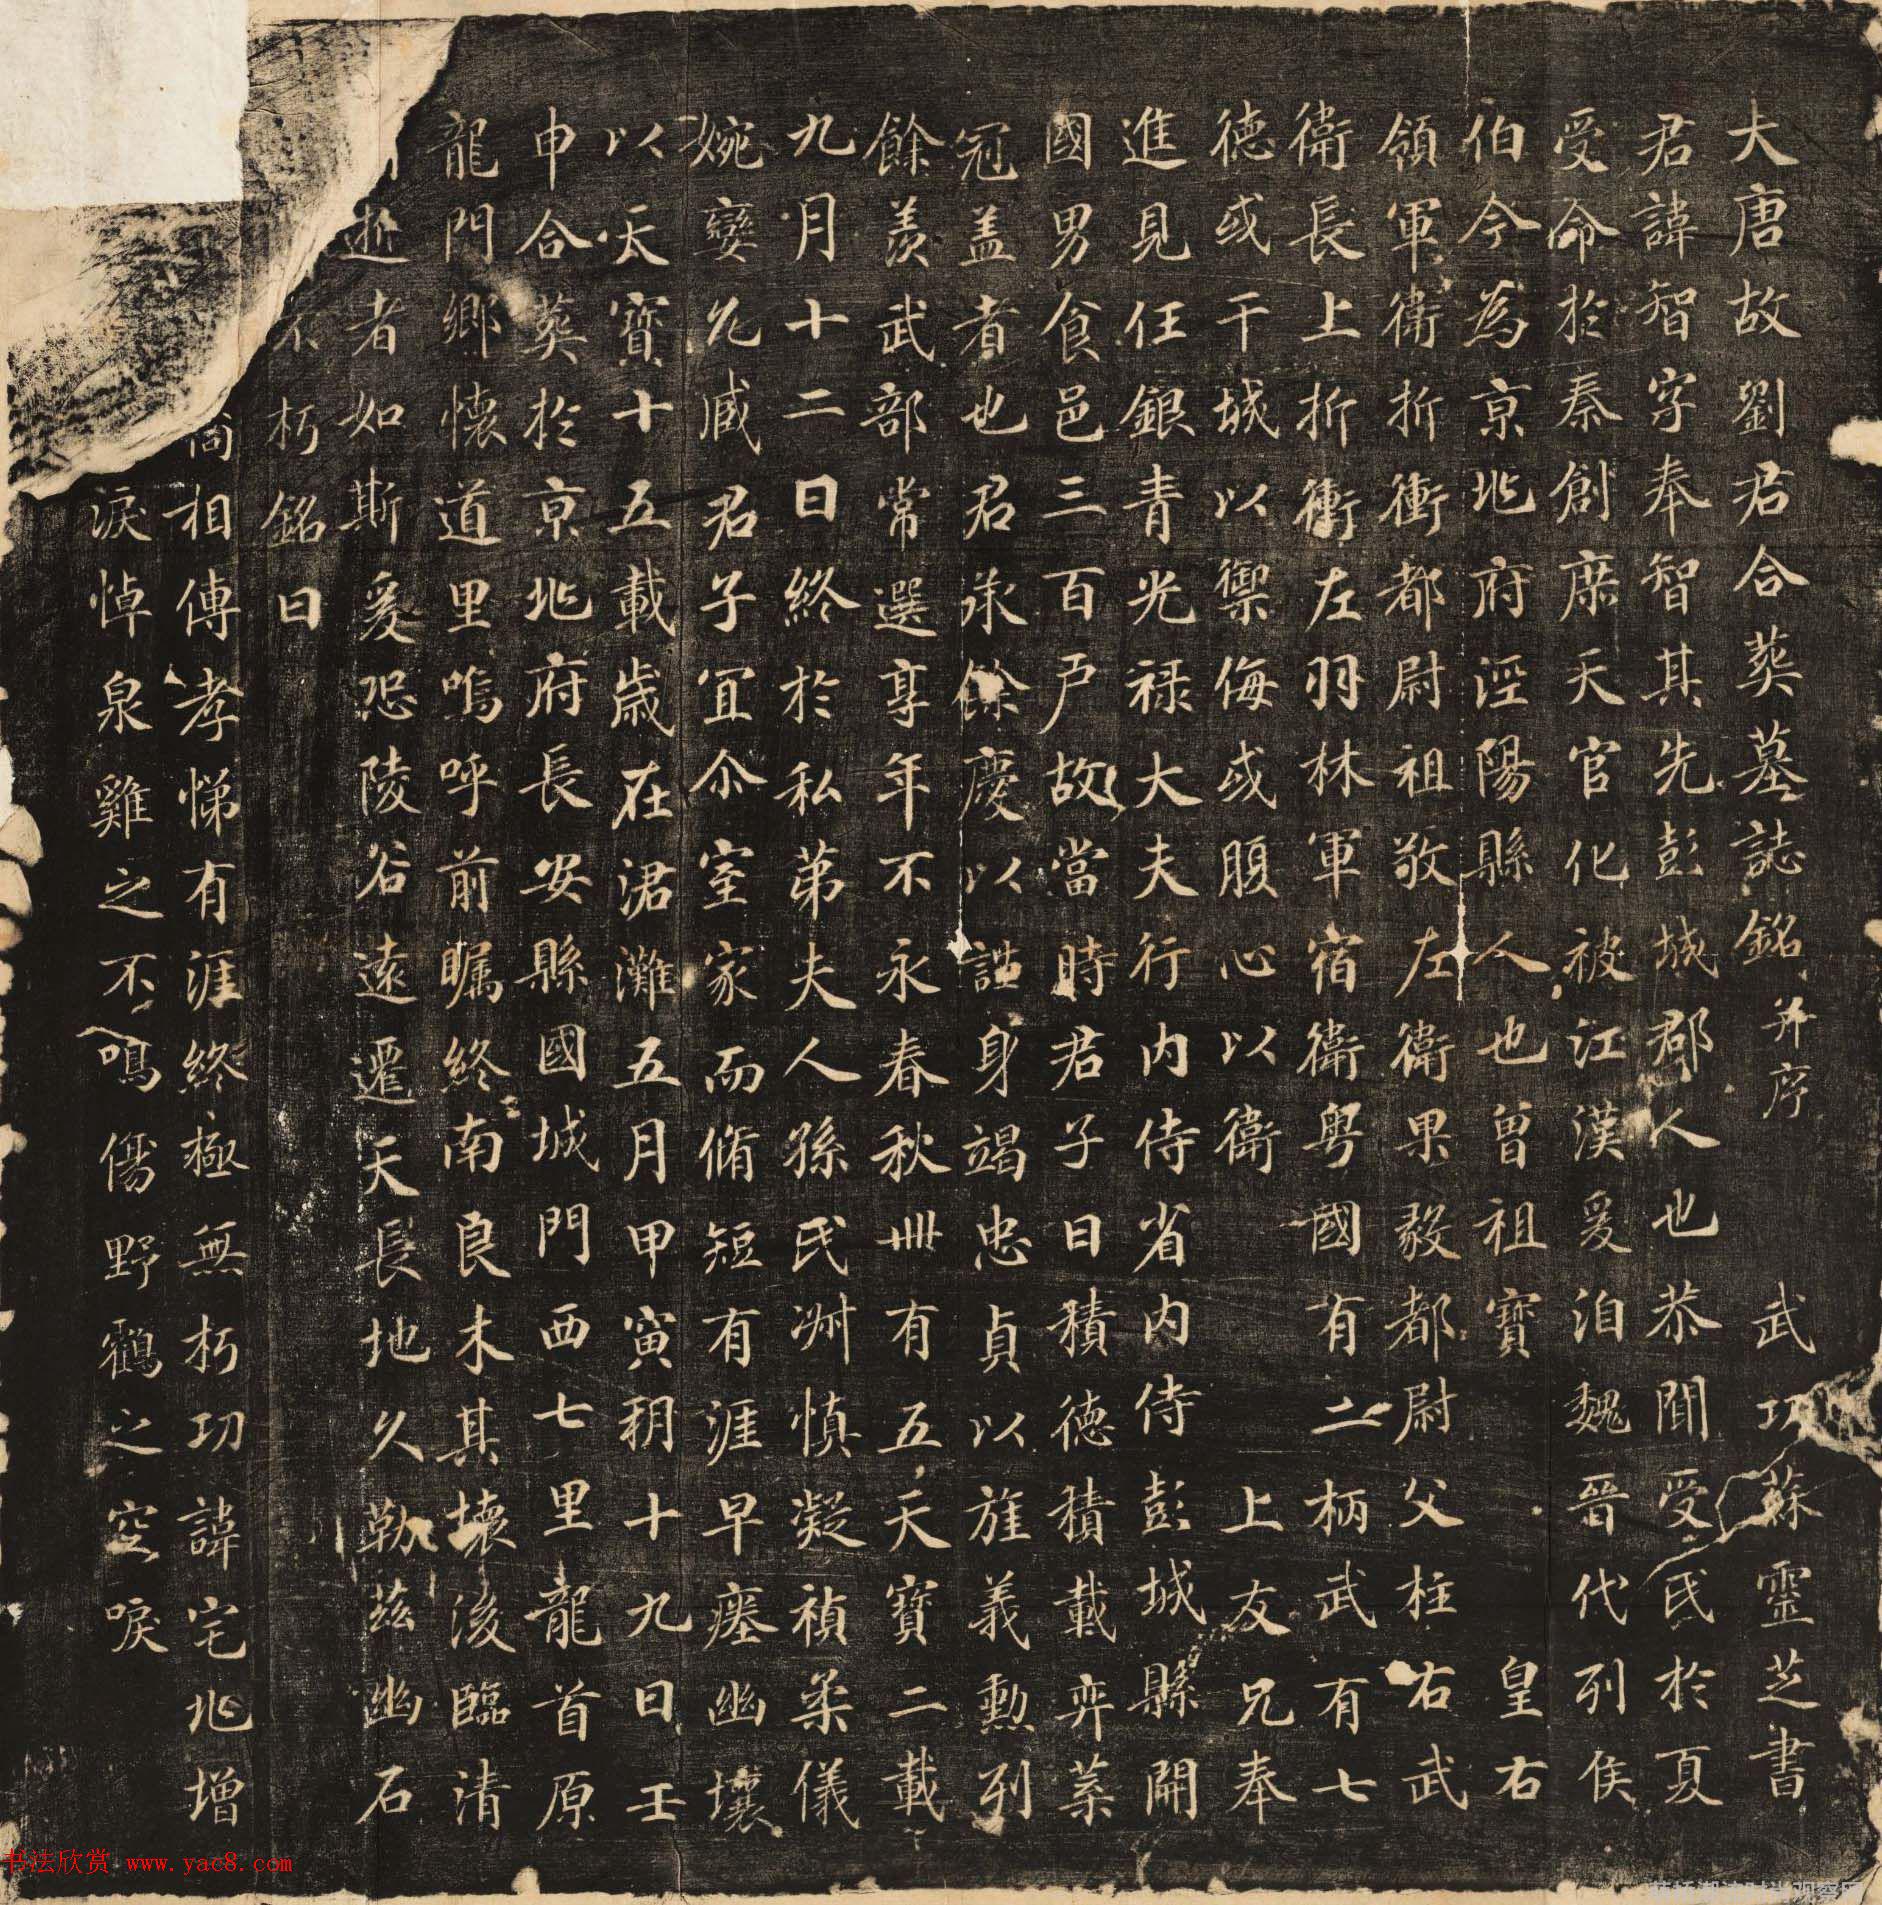 大唐故劉君合葬墓誌銘并序 武功蘇靈芝書
君諱智字奉智其先彭城郡人也恭聞受氏於夏
受命於秦創庶天官化被江漢爰洎魏晉代列侯
伯今為京兆府涇陽縣人也曾祖寶 皇右
領軍衛折衝都尉祖敬左衛果毅都尉父柱右武
衛長上折衝左羽林軍宿衛粤國有二柄武有七
德或干城以禦侮或腹心以衛 上友兄奉
進見任銀青光祿大夫行內侍省內侍彭城縣開
國男食邑三百戶故當時君子曰積德積載弈葉
冠盖者也君承餘慶以謹身竭忠貞以旌義勲列
餘羡武部常選享年不永春秋卌有五天寶二載
九月十二日終於私弟夫人孫氏淋慎凝禎柔儀
婉孌允臧君子宜尒室家而脩短有涯早瘞幽壤
以天寶十五載歲在涒灘五月甲寅玥十九日壬
申合葬於京兆府長安縣國城門西七里龍首原
龍門鄉懷道里嗚呼前瞩終南良木其壞後臨清
逝者如斯爰恐陵谷遠遷天長地久勒茲幽石
不朽銘曰
尚相傳孝悌有涯終極無朽功諱宅兆增
淚悼泉雞之不鳴傷野鶴之空唳
书法欣赏 www.yac8.com